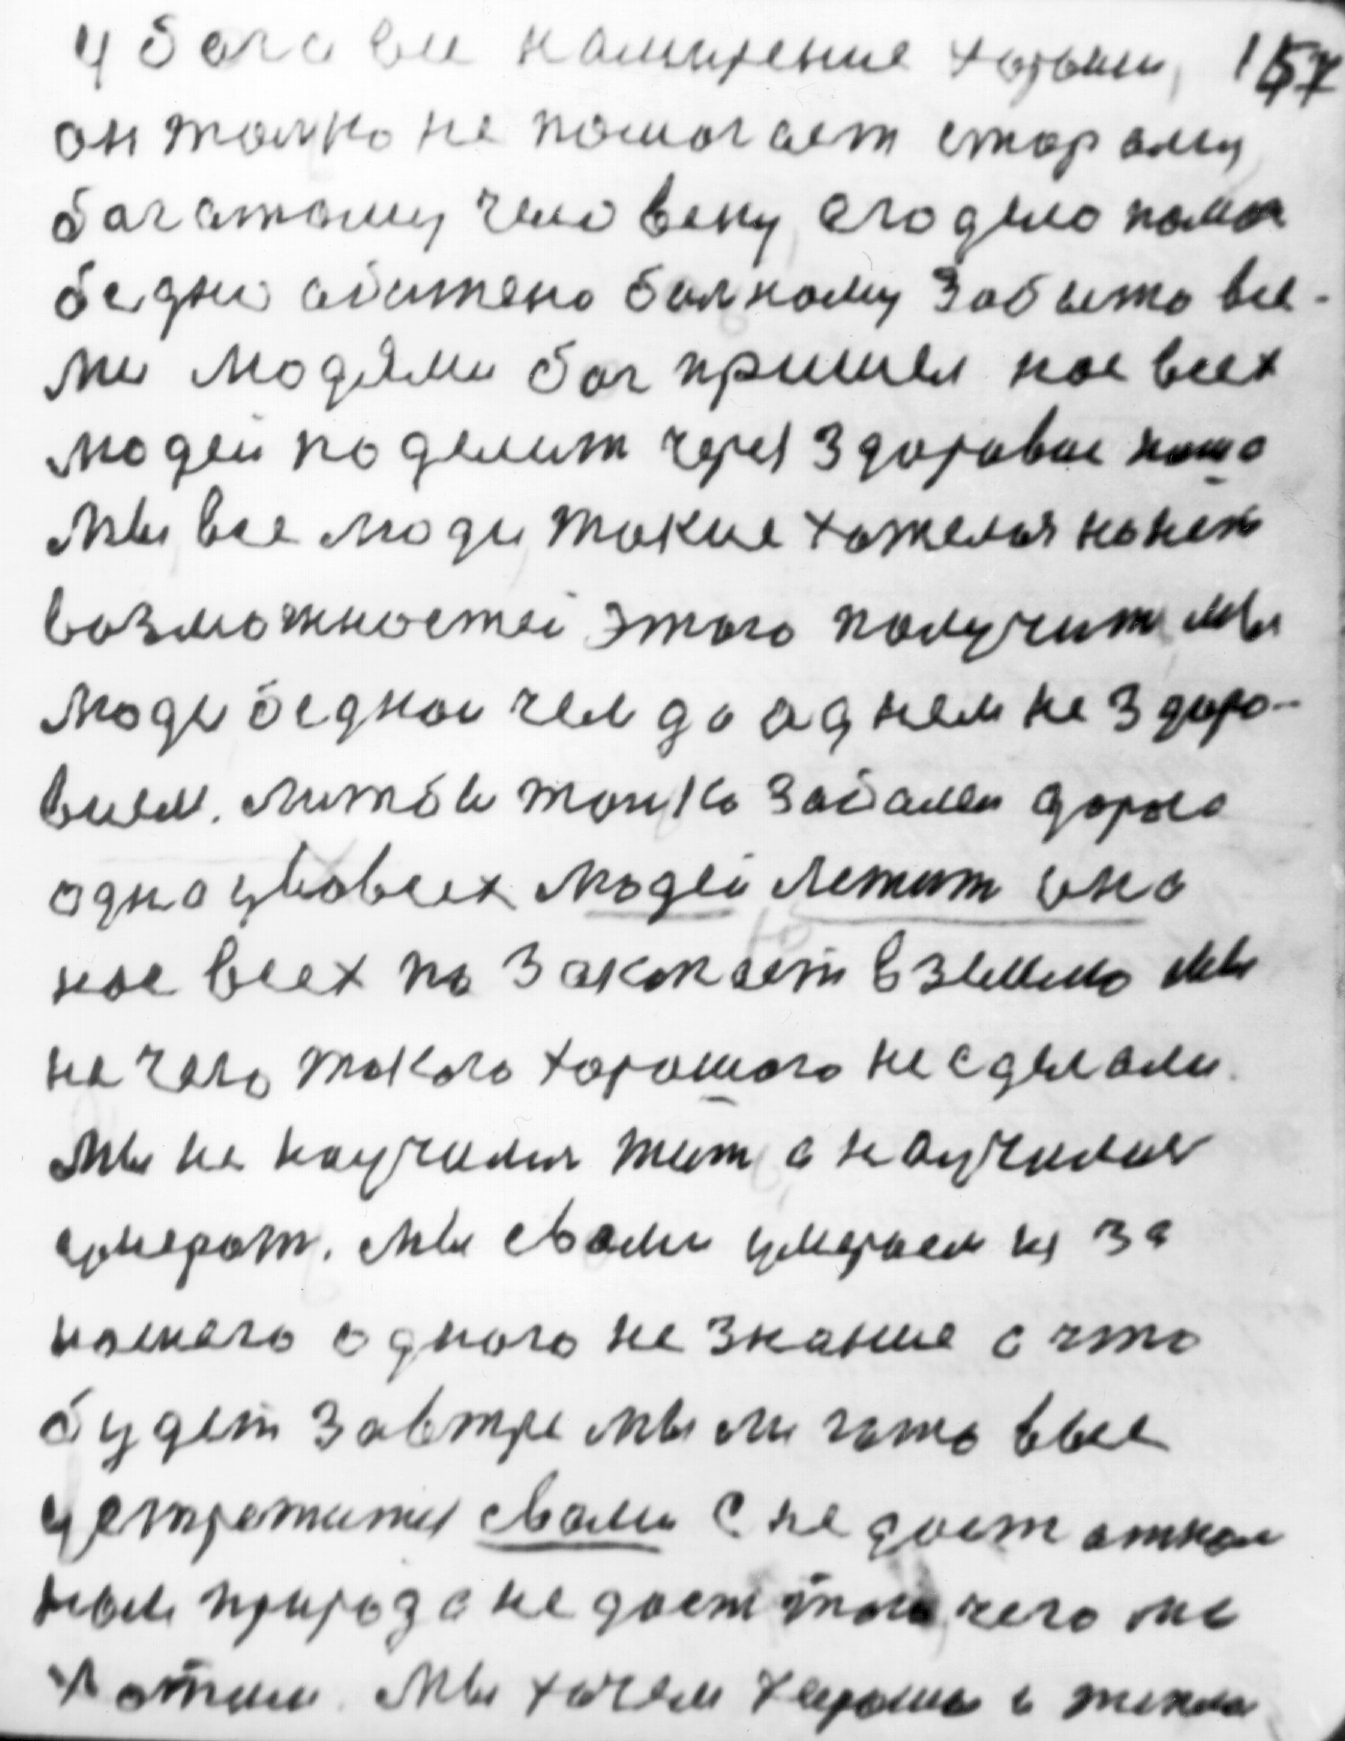 у бога все намирение хорошии, 157
он толко не помогает старому
багатому человеку, его дело помоч
бедно абижено болному Забыто все-
ми людями бог пришел нас всех
людей поделит через Здоровае наше
мы, все люди, такие тажелыя на нет
возможностей этого получит, мы
люди беднаи чем до аднем не Здоро-
вием. Литбы толко Забалел дорога
одна у вовсех людей Летит она
нас всех по Закопает в землю мы
не чего такого хорошого не сделали.
мы не научился жит, а научился
умерат. мы свами умераем из за
нашего одного не знание а что
будет Завтре мы ли гото выс
устретится свами С не достаткам
нам природа не дает того, чего мы
хотим. Мы хочем хорошо и тепло